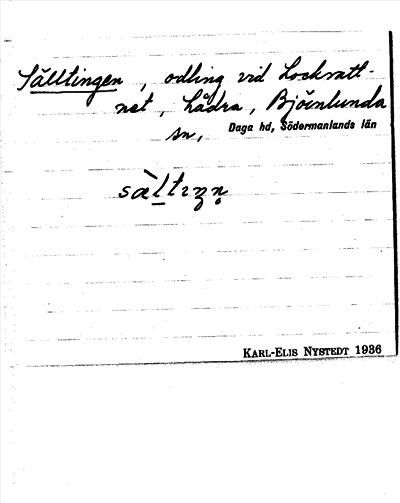 Sälltingen, odling vid Lockvatt-
net, Lådra, Björnlunda
sn, Daga hd, Södermanlands län
sæ̀ltɪŋn̥
KARL-ELIS NYSTEDT 1936